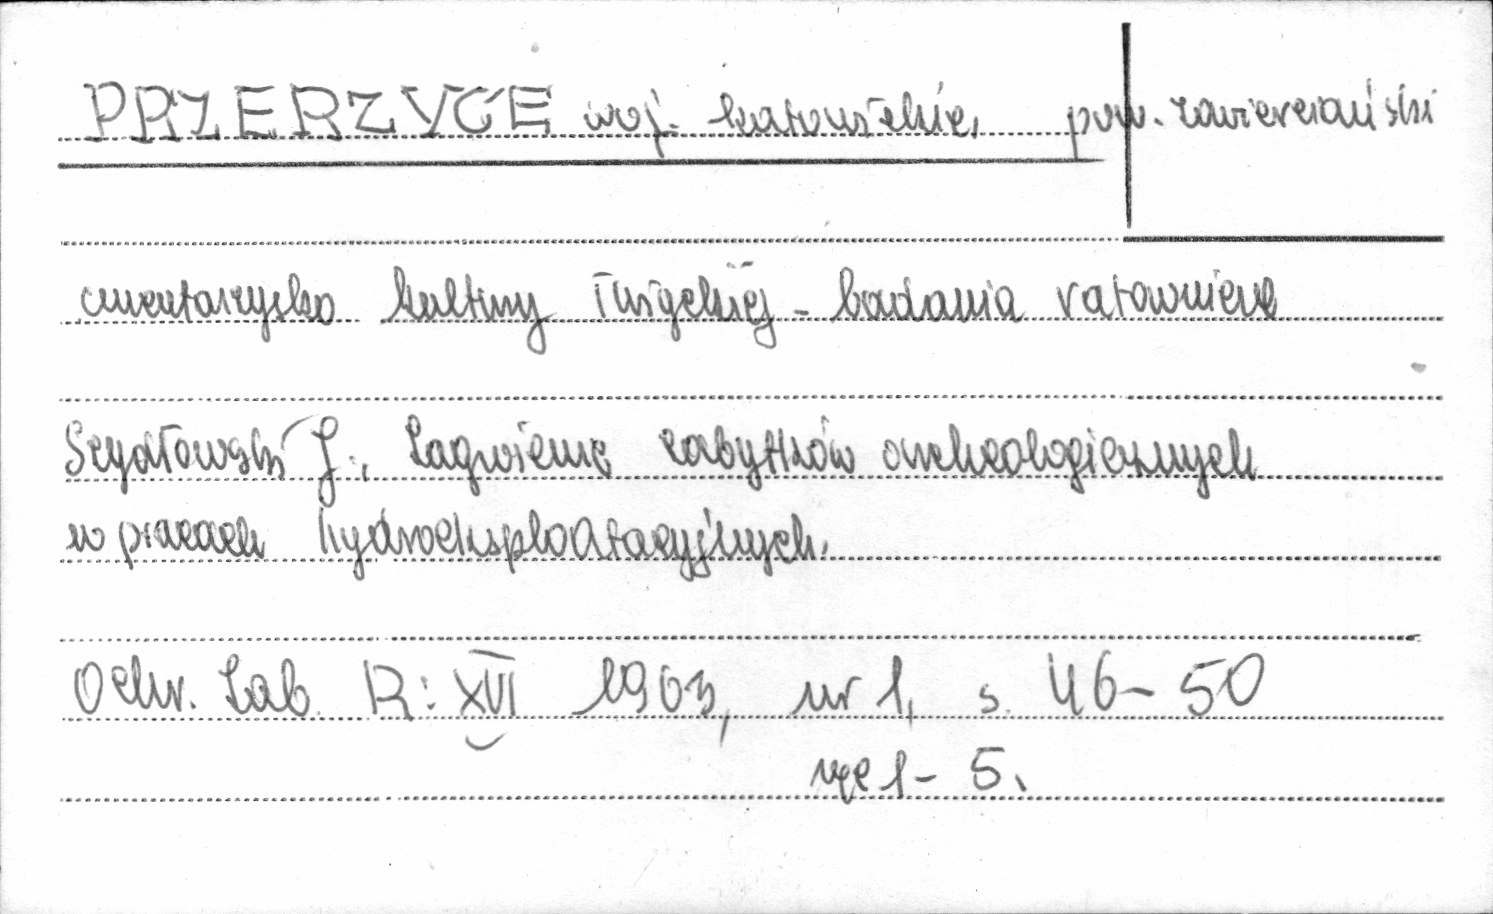 PRZERZYCE woj. katowickie, pow. zawierciański
cmentarzysko kultury łużyckiej - badania ratownicze
Szydłowski J., Zagrożenie zabytków archeologicznych
w pracach hydroeksploatacyjnych.
Ochr. Zab. R: XVI 1963, nr 1, s. 46-50
ryc 1-5.